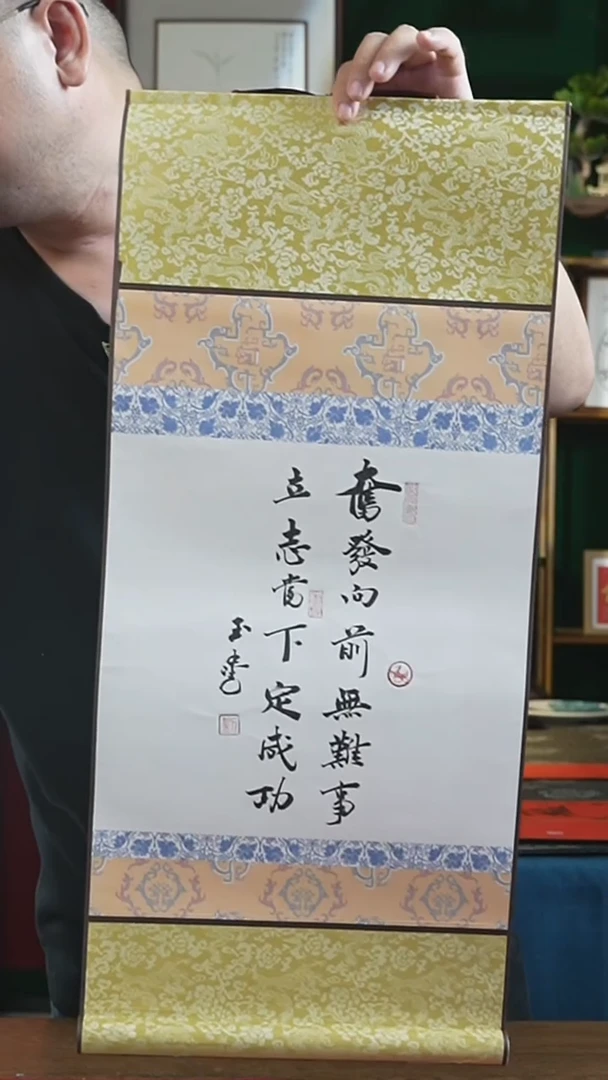 奮發向前無難事
立志當下定成功